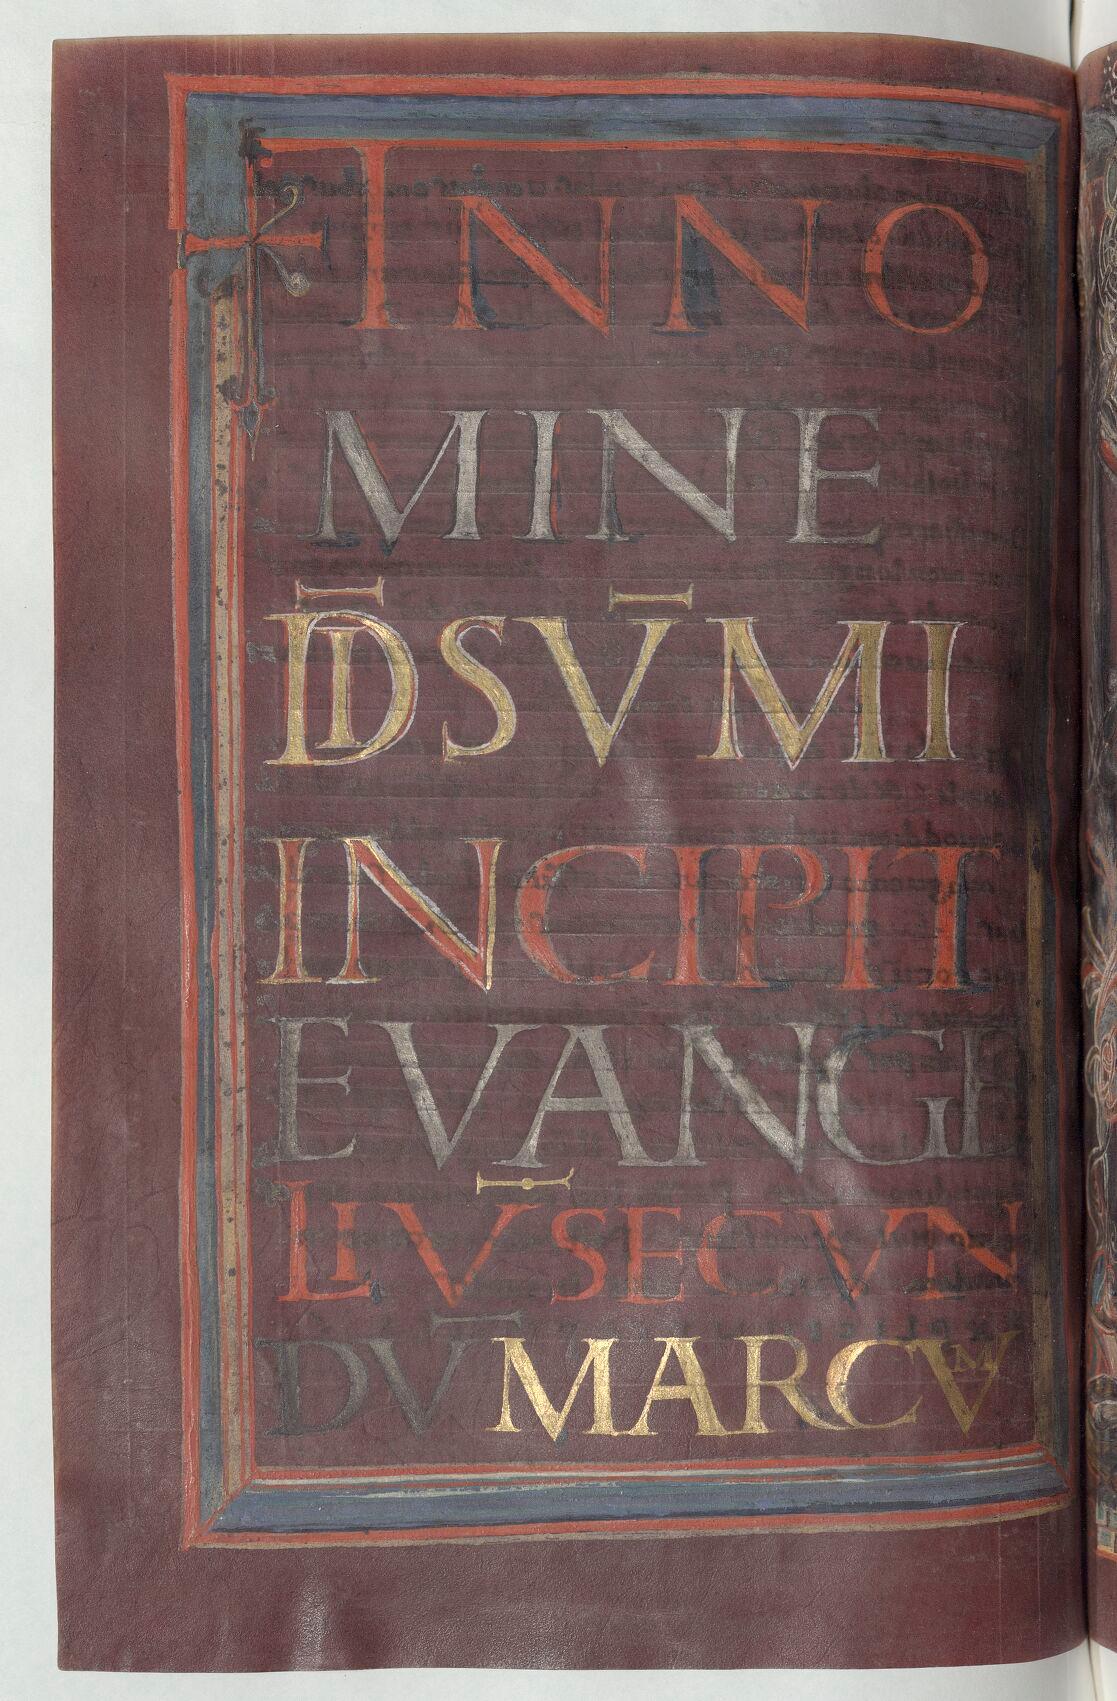 INNO
MINE
D̅I DSV̅MI
INCIPIT
EVANGE
LIV̅ SECUN
DV̅ MARCVM